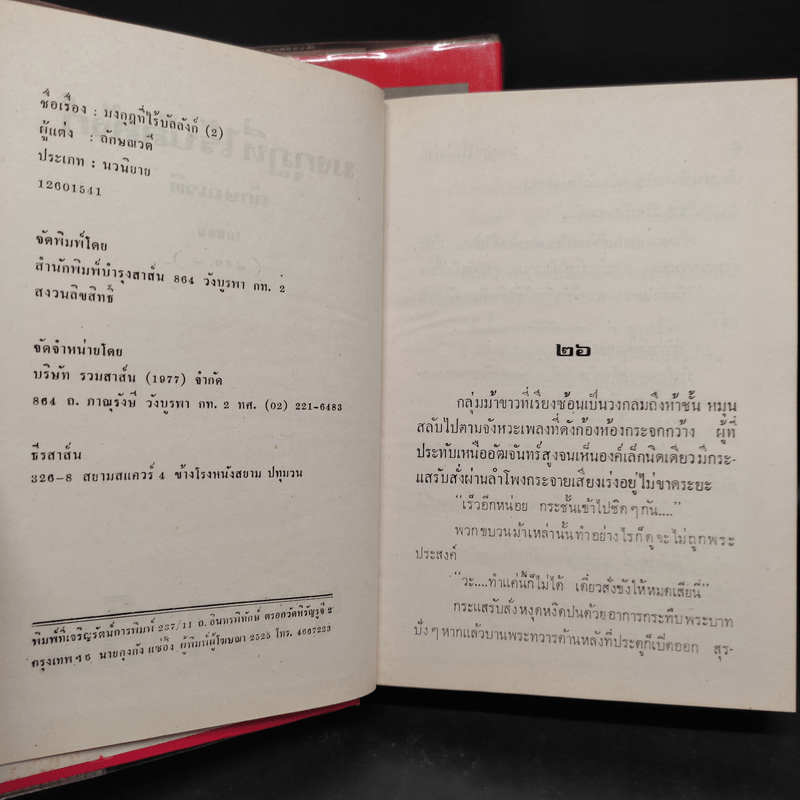 ชื่อเรื่อง : มงกุฎที่ไร้บัลลังก์ (2)
ผู้แต่ง : ลักษณวดี
ประเภท : นวนิยาย
12601541
จัดพิมพ์โดย
สำนักพิมพ์บำรุงสาส์น 864 วังบูรพา กท. 2
สงวนลิขสิทธิ์
จัดจำหน่ายโดย
บริษัท รวมสาส์น (1977) จำกัด
864 ถ. ภาณุรังษี วังบูรพา กท. 2 ทศ. (02) 221-6483
ธีรสาส์น
326-8 สยามสแควร์ 4 ข้างโรงหนังสยาม ปทุมวน
พิมพ์ที่เจริญรัตน์การพิมพ์ 237/11 ถ. อินทรพิทักษ์ ตรอกวัดหิรัญรูจี 2
กรุงเทพ ฯ นายกุงกัง แซ่อึง ผู้พิมพ์ผู้โฆษณา 2525 โทร. 4667223
๒๖
กลุ่มม้าขาวที่เรียงซ้อนเป็นวงกลมถึงห้าชั้น หมุน
สลับไปตามจังหวะเพลงที่ดังก้องห้องกระจกกว้าง ผู้ที่
ประทับเหนืออัฒจันทร์สูงจนเห็นองค์เล็กนิดเดียวมีกระ-
แสรับสั่งผ่านลำโพงกระจายเสียงเร่งอยู่ไม่ขาดระยะ
“เร็วอีกหน่อย กระชั้นเข้าไปชิดๆกัน....”
พวกขบวนม้าเหล่านั้นทำอย่างไรก็ดูจะไม่ถูกพระ
ประสงค์
“วะ....ทำแค่นี้ก็ไม่ได้ เดี๋ยวสั่งขังให้หมดเสียนี่”
กระแสรับสั่งหงุดหงิดปนด้วยอาการกระทืบพระบาท
ปังๆ หากแล้วบานพระทวารด้านหลังที่ประตูก็เปิดออก สุร-